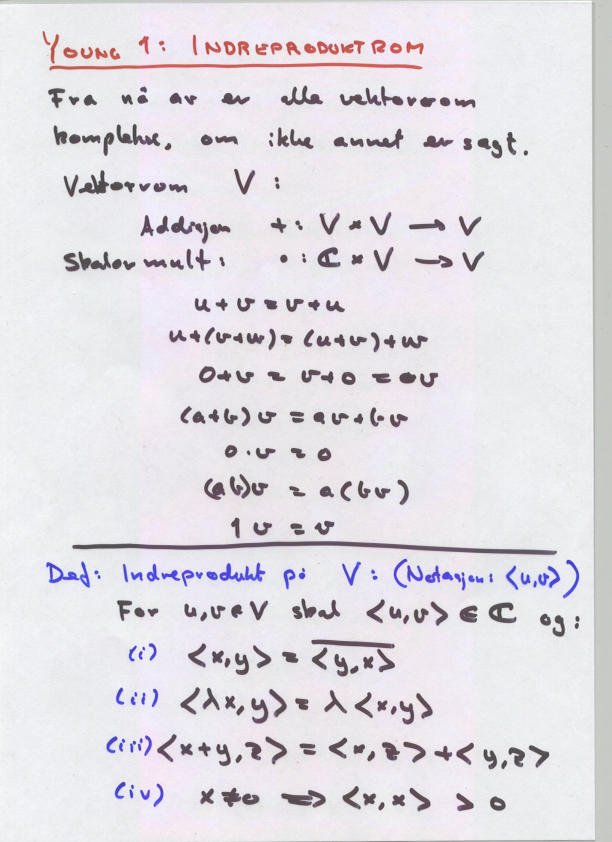 YOUNG 1: INDREPRODUKTROM
Fra nå av er alle vektorrom
komplekse, om ikke annet er sagt.
Vektorrom V :
Addisjon +: V × V → V
Skalarmult: • : ℂ × V → V
u + v = v + u
u+(v+w) = (u+v)+w
0+v = v+0 = v
(a+b)v = av+bv
0·v = 0
(ab)v = a(bv)
1v = v
Def: Indreprodukt på V: (Notasjon: <u,v>)
For u,v ∈ V skal <u,v> ∈ ℂ og:
(i) <x,y> = \overline{<y,x>}
(ii) <λx,y> = λ<x,y>
(iii) <x+y,z> = <x,z> + <y,z>
(iv) x ≠ 0 ⟹ <x,x> > 0